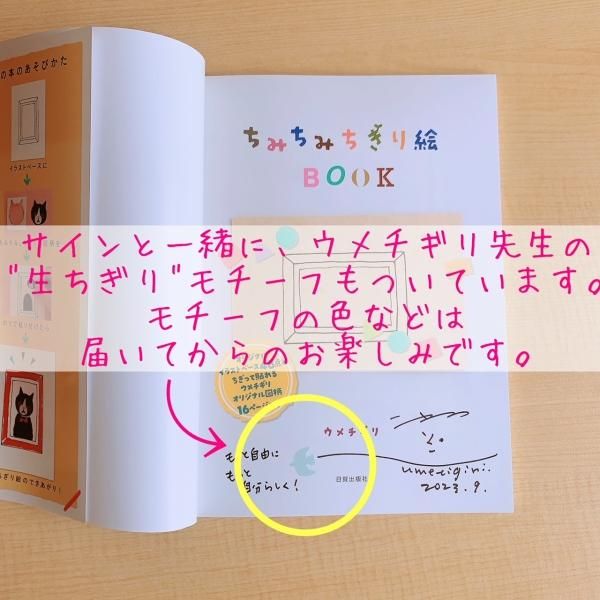 の本のあそびかた
イラストベースに
できあがり！
ちみちみちぎり絵
BOOK
サインと一緒に、ウメチギリ先生の
"生ちぎり"モチーフもついています。
モチーフの色などは
届いてからのお楽しみです。
ちぎって貼れる
ウメチギリ
オリジナル図柄
16ページ
ウメチギリ
もっと自由に
もっと
自分らしく！
umetigiri.
2023.9.
日貿出版社